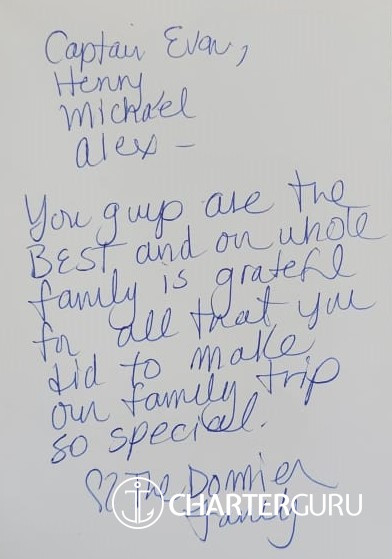 Captain Evan,
Henry,
Michael
Alex –
You guys are the
BEST and our whole
family is grateful
for all that you
did to make
our family trip
so special.
♡ The
Family
CHARTERGURU